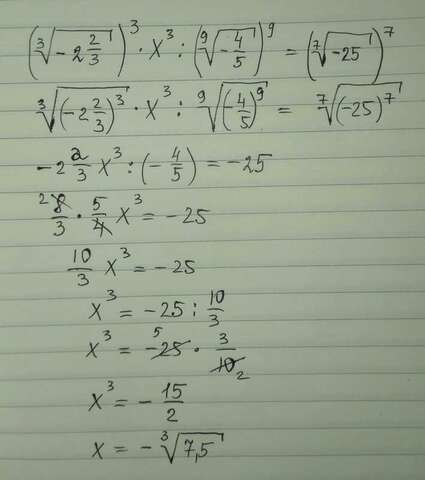 (∛(-2 2/3))³ · x³ : (⁹√(-4/5))⁹ = (⁷√(-25))⁷
∛((-2 2/3)³) · x³ : ⁹√((-4/5)⁹) = ⁷√((-25)⁷)
-2 2/3 x³ : (-4/5) = -25
2 8/3 · 5/4 x³ = -25
10/3 x³ = -25
x³ = -25 : 10/3
x³ = -25 5 · 3/10 2
x³ = -15/2
x = -∛(7,5)